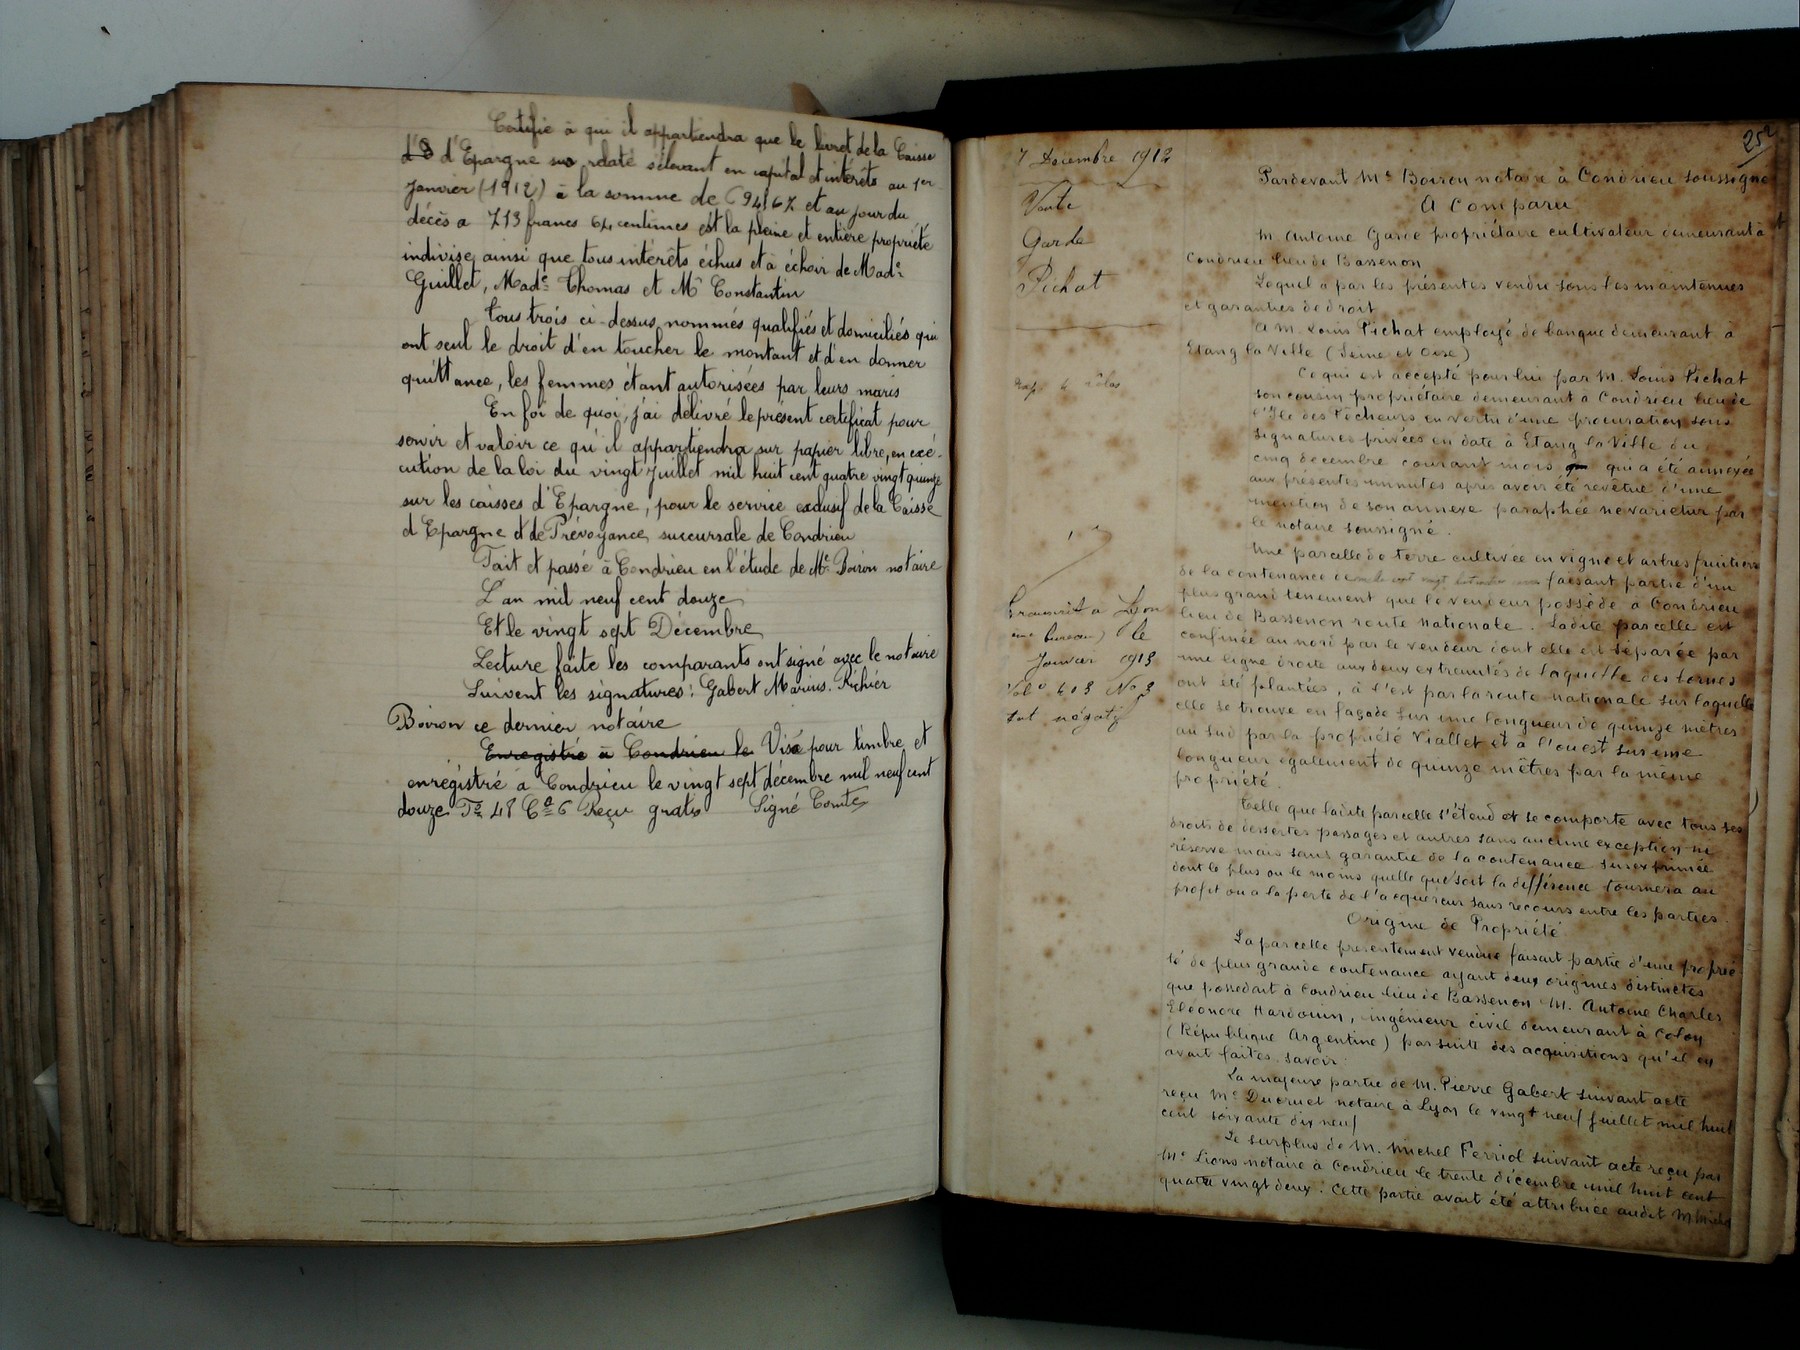 Certifie à qui il appartiendra que le livret de la Caisse
d'Epargne sus relaté s'élevant en capital et intérêts au 1er
Janvier (1912) à la somme de 694f 67 et au jour du
décès a 713 francs 64 centimes est la pleine et entière propriété
indivise, ainsi que tous intérêts échus et à échoir de Made
Guillet, Made Thomas et Mr Constantin
tous trois ci-dessus nommés qualifiés et domiciliés qui
ont seul le droit d'en toucher le montant et d'en donner
quittance, les femmes étant autorisées par leurs maris
En foi de quoi, j'ai délivré le présent certificat pour
servir et valoir ce qu'il appartiendra sur papier libre, en exé-
cution de la loi du vingt Juillet mil huit cent quatre vingt quinze
sur les caisses d'Epargne, pour le service exclusif de la Caisse
d'Epargne et de Prévoyance, succursale de Condrieu
Fait et passé à Condrieu en l'étude de Me Boiron notaire
L'an mil neuf cent douze
Et le vingt sept Décembre
Lecture faite les comparants ont signé avec le notaire
Suivent les signatures: Gabert Marius. Richier
Boiron ce dernier notaire
Enregistré à Condrieu le Visé pour timbre et
enrégistré à Condrieu le vingt sept décembre mil neuf cent
douze Fo 48 Ce 6 Reçu gratis Signé Comte
252
7 Décembre 1912
Vente
Garde
Pichat
4 rôles
Transcrit à Lyon
bureau) le
Janvier 1913
Vol 403 No 3
Est négatif
Pardevant Me Boiron notaire à Condrieu soussigné
A Comparu
M. Antoine Garde propriétaire cultivateur demeurant à
Condrieu lieu de Bassenon
Lequel a par les présentes vendu sous les maintenues
et garanties de droit
A M. Louis Pichat employé de banque demeurant à
Etang la Ville (Seine et Oise)
Ce qui est accepté pour lui par M. Louis Pichat
son cousin propriétaire demeurant à Condrieu lieu de
l'Ile des Pêcheurs en vertu d'une procuration sous
signatures privées en date à Etang la Ville du
cinq décembre courant mois qui a été annexée
aux présentes minutes après avoir été revêtue d'une
mention de son annexe paraphée ne varietur par
le notaire soussigné.
Une parcelle de terre cultivée en vigne et arbres fruitiers
de la contenance de faisant partie d'un
plus grand tenement que le vendeur possède à Condrieu
lieu de Bassenon route Nationale. Ladite parcelle est
confinée au nord par le vendeur dont elle est séparée par
une ligne droite aux deux extrémités de laquelle des bornes
ont été plantées, à l'est par la route nationale sur laquelle
elle se trouve en façade sur une longueur de quinze mètres
au sud par la propriété Viallet et à l'ouest sur une
longueur également de quinze mètres par la même
propriété.
Telle que ladite parcelle s'étend et se comporte avec tous ses
droits de dessertes passages et autres sans aucune exception ni
réserve mais sans garantie de la contenance susexprimée
dont le plus ou le moins quelle que soit la différence tournera au
profit ou à la perte de l'acquéreur sans recours entre les parties.
Origine de Propriété.
La parcelle présentement vendue faisait partie d'une proprié
té de plus grande contenance ayant deux origines distinctes
que possédait à Condrieu lieu de Bassenon M. Antoine Charles
Eléonore Hardouin, ingénieur civil demeurant à Colon
(République Argentine) par suite des acquisitions qu'il en
avait faites. savoir:
La majeure partie de M. Pierre Gabert suivant acte
reçu Me Ducruet notaire à Lyon le vingt neuf Juillet mil huit
cent soixante dix neuf
Le surplus de M. Michel Ferriol suivant acte reçu par
Me Lions notaire à Condrieu le trente décembre mil huit cent
quatre vingt deux. Cette partie avait été attribuée audit M. Michel